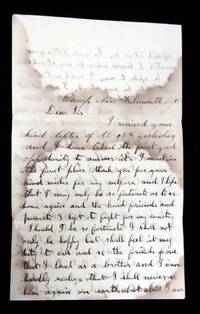 Camp Near Falmouth Va.
Dear Sir
I received your
kind letter of the 13th yesterday
and I have taken the first good
opportunity to answer it. I must in
the first place thank you for your
kind wishes for my welfare and I hope
that I may only be so fortunate as to see
home again and the kind friends and
parents I left to fight for my country
Should I be so fortunate I shall not
only be happy but shall feel it my
duty to call and see the friends of one
that I loved as a brother and I can
hardly realize that I shall never see
him again on earth but alas I am